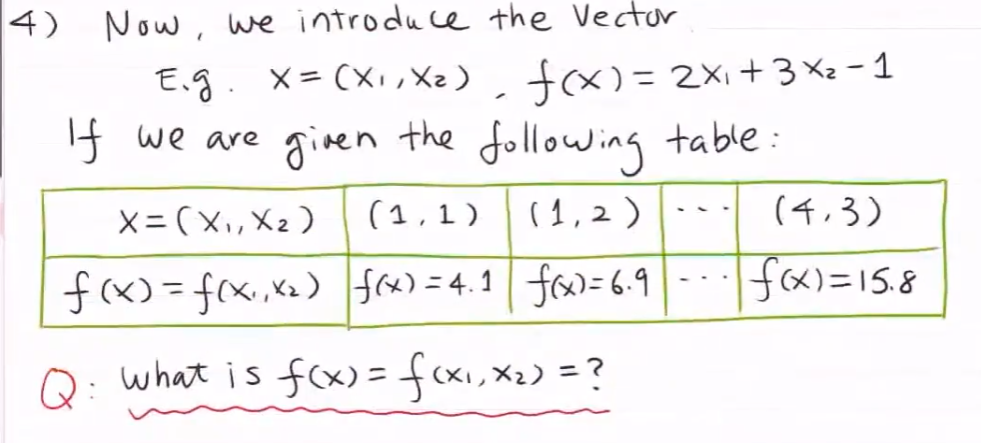 4) Now, we introduce the Vector
E.g. x = (x₁, x₂), f(x) = 2x₁ + 3x₂ - 1
If we are given the following table:
x = (x₁, x₂) (1, 1) (1, 2) --- (4, 3)
f(x) = f(x₁, x₂) f(x) = 4.1 f(x) = 6.9 --- f(x) = 15.8
Q: what is f(x) = f(x₁, x₂) = ?